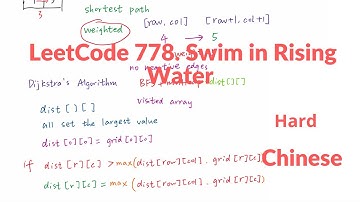 3
shortest path
weighted
[row, col]
[row+1, col+1]
4 → 5
no negative edges
LeetCode 778. Swim in Rising Water
Dijkstra's Algorithm
BFS
dist[][]
dist [ ] [ ]
visited array
all set the largest value
dist [0][0] = grid [0][0]
Hard
if dist [r][c] > max (dist [row][col], grid [r][c])
Chinese
dist [r][c] = max (dist [row][col], grid [r][c])